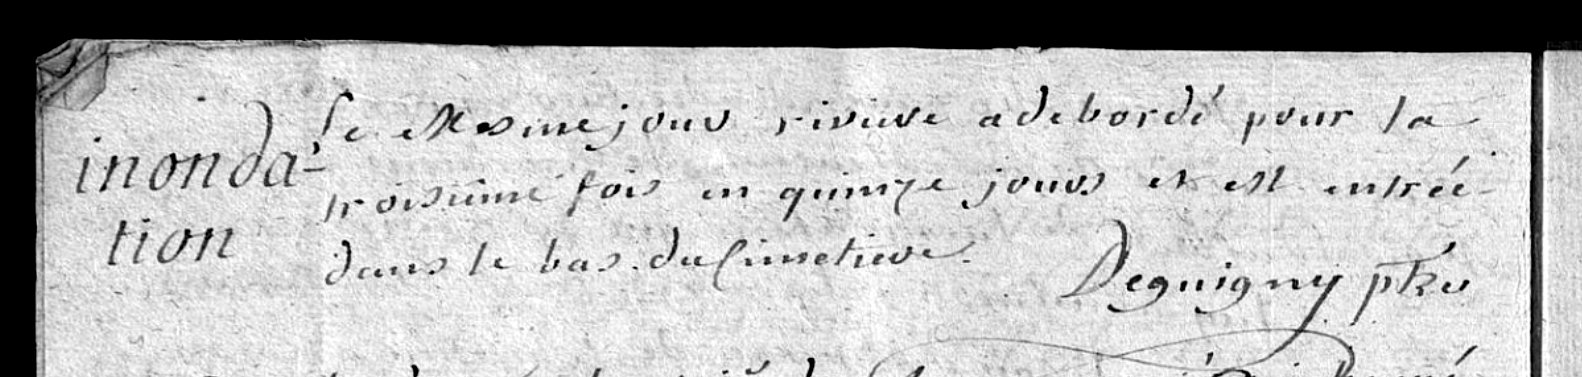 inonda-
tion
Le Mesme jour riviere a debordé pour la
troisiéme fois en quinze jours et est entrée
dans le bas du Cimetiere.
Deguigny ptre